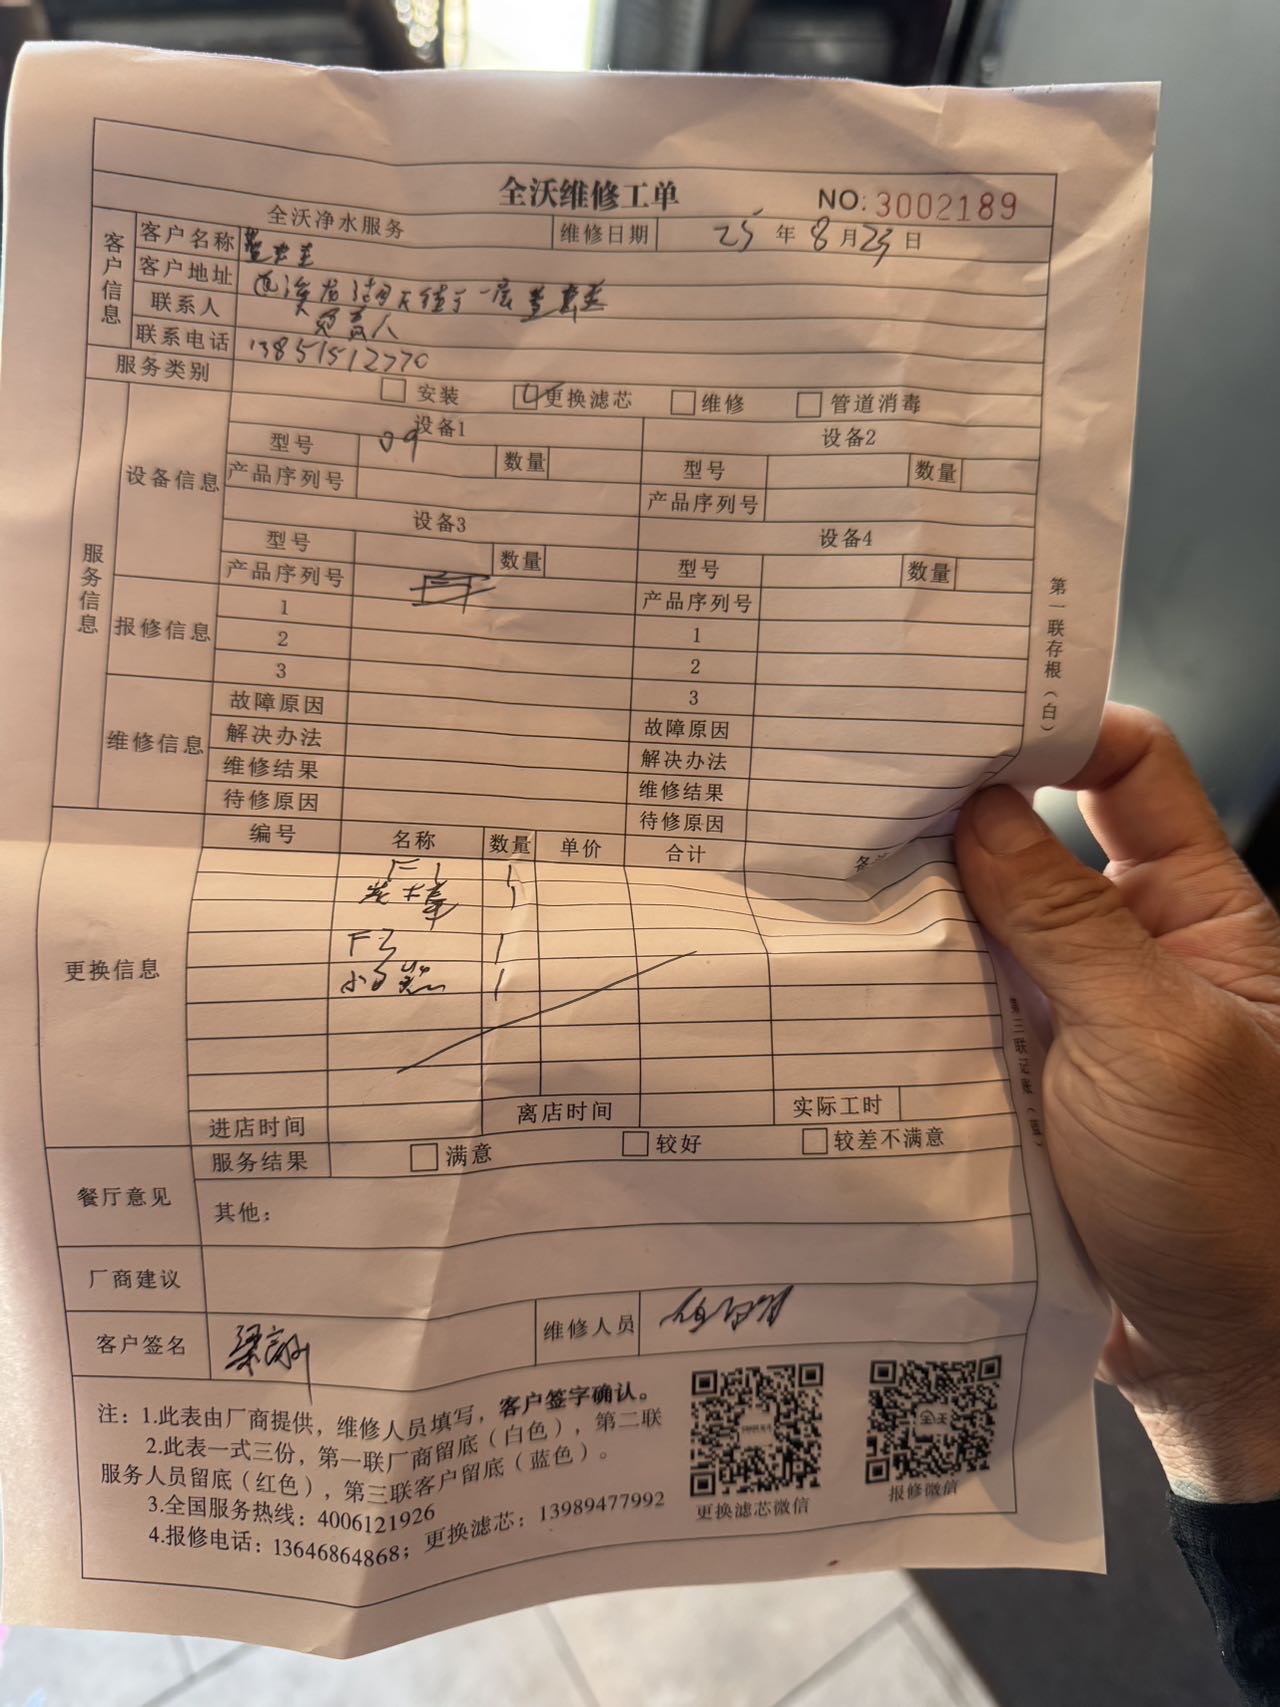 全沃维修工单
NO: 3002189
全沃净水服务 维修日期 25 年 8 月 23 日
客户信息
客户名称
客户地址 龙湖天街 一层
联系人 负责人
联系电话 13851512770
服务类别 安装 更换滤芯 维修 管道消毒
服务信息
设备信息
设备1 设备2
型号 09 数量 型号 数量
产品序列号 产品序列号
设备3 设备4
型号 数量 型号 数量
产品序列号 产品序列号
报修信息
1 1
2 2
3 3
维修信息
故障原因 故障原因
解决办法 解决办法
维修结果 维修结果
待修原因 待修原因
更换信息
编号 名称 数量 单价 合计
F-1 1
炭棒 1
F3 1
1
进店时间 离店时间 实际工时
餐厅意见
服务结果 满意 较好 较差不满意
其他：
厂商建议
客户签名 维修人员
注：1.此表由厂商提供，维修人员填写，客户签字确认。
2.此表一式三份，第一联厂商留底（白色），第二联
服务人员留底（红色），第三联客户留底（蓝色）。
3.全国服务热线：4006121926
4.报修电话：13646864868；更换滤芯：13989477992
更换滤芯微信
报修微信
第一联存根（白）
第三联记账（蓝）